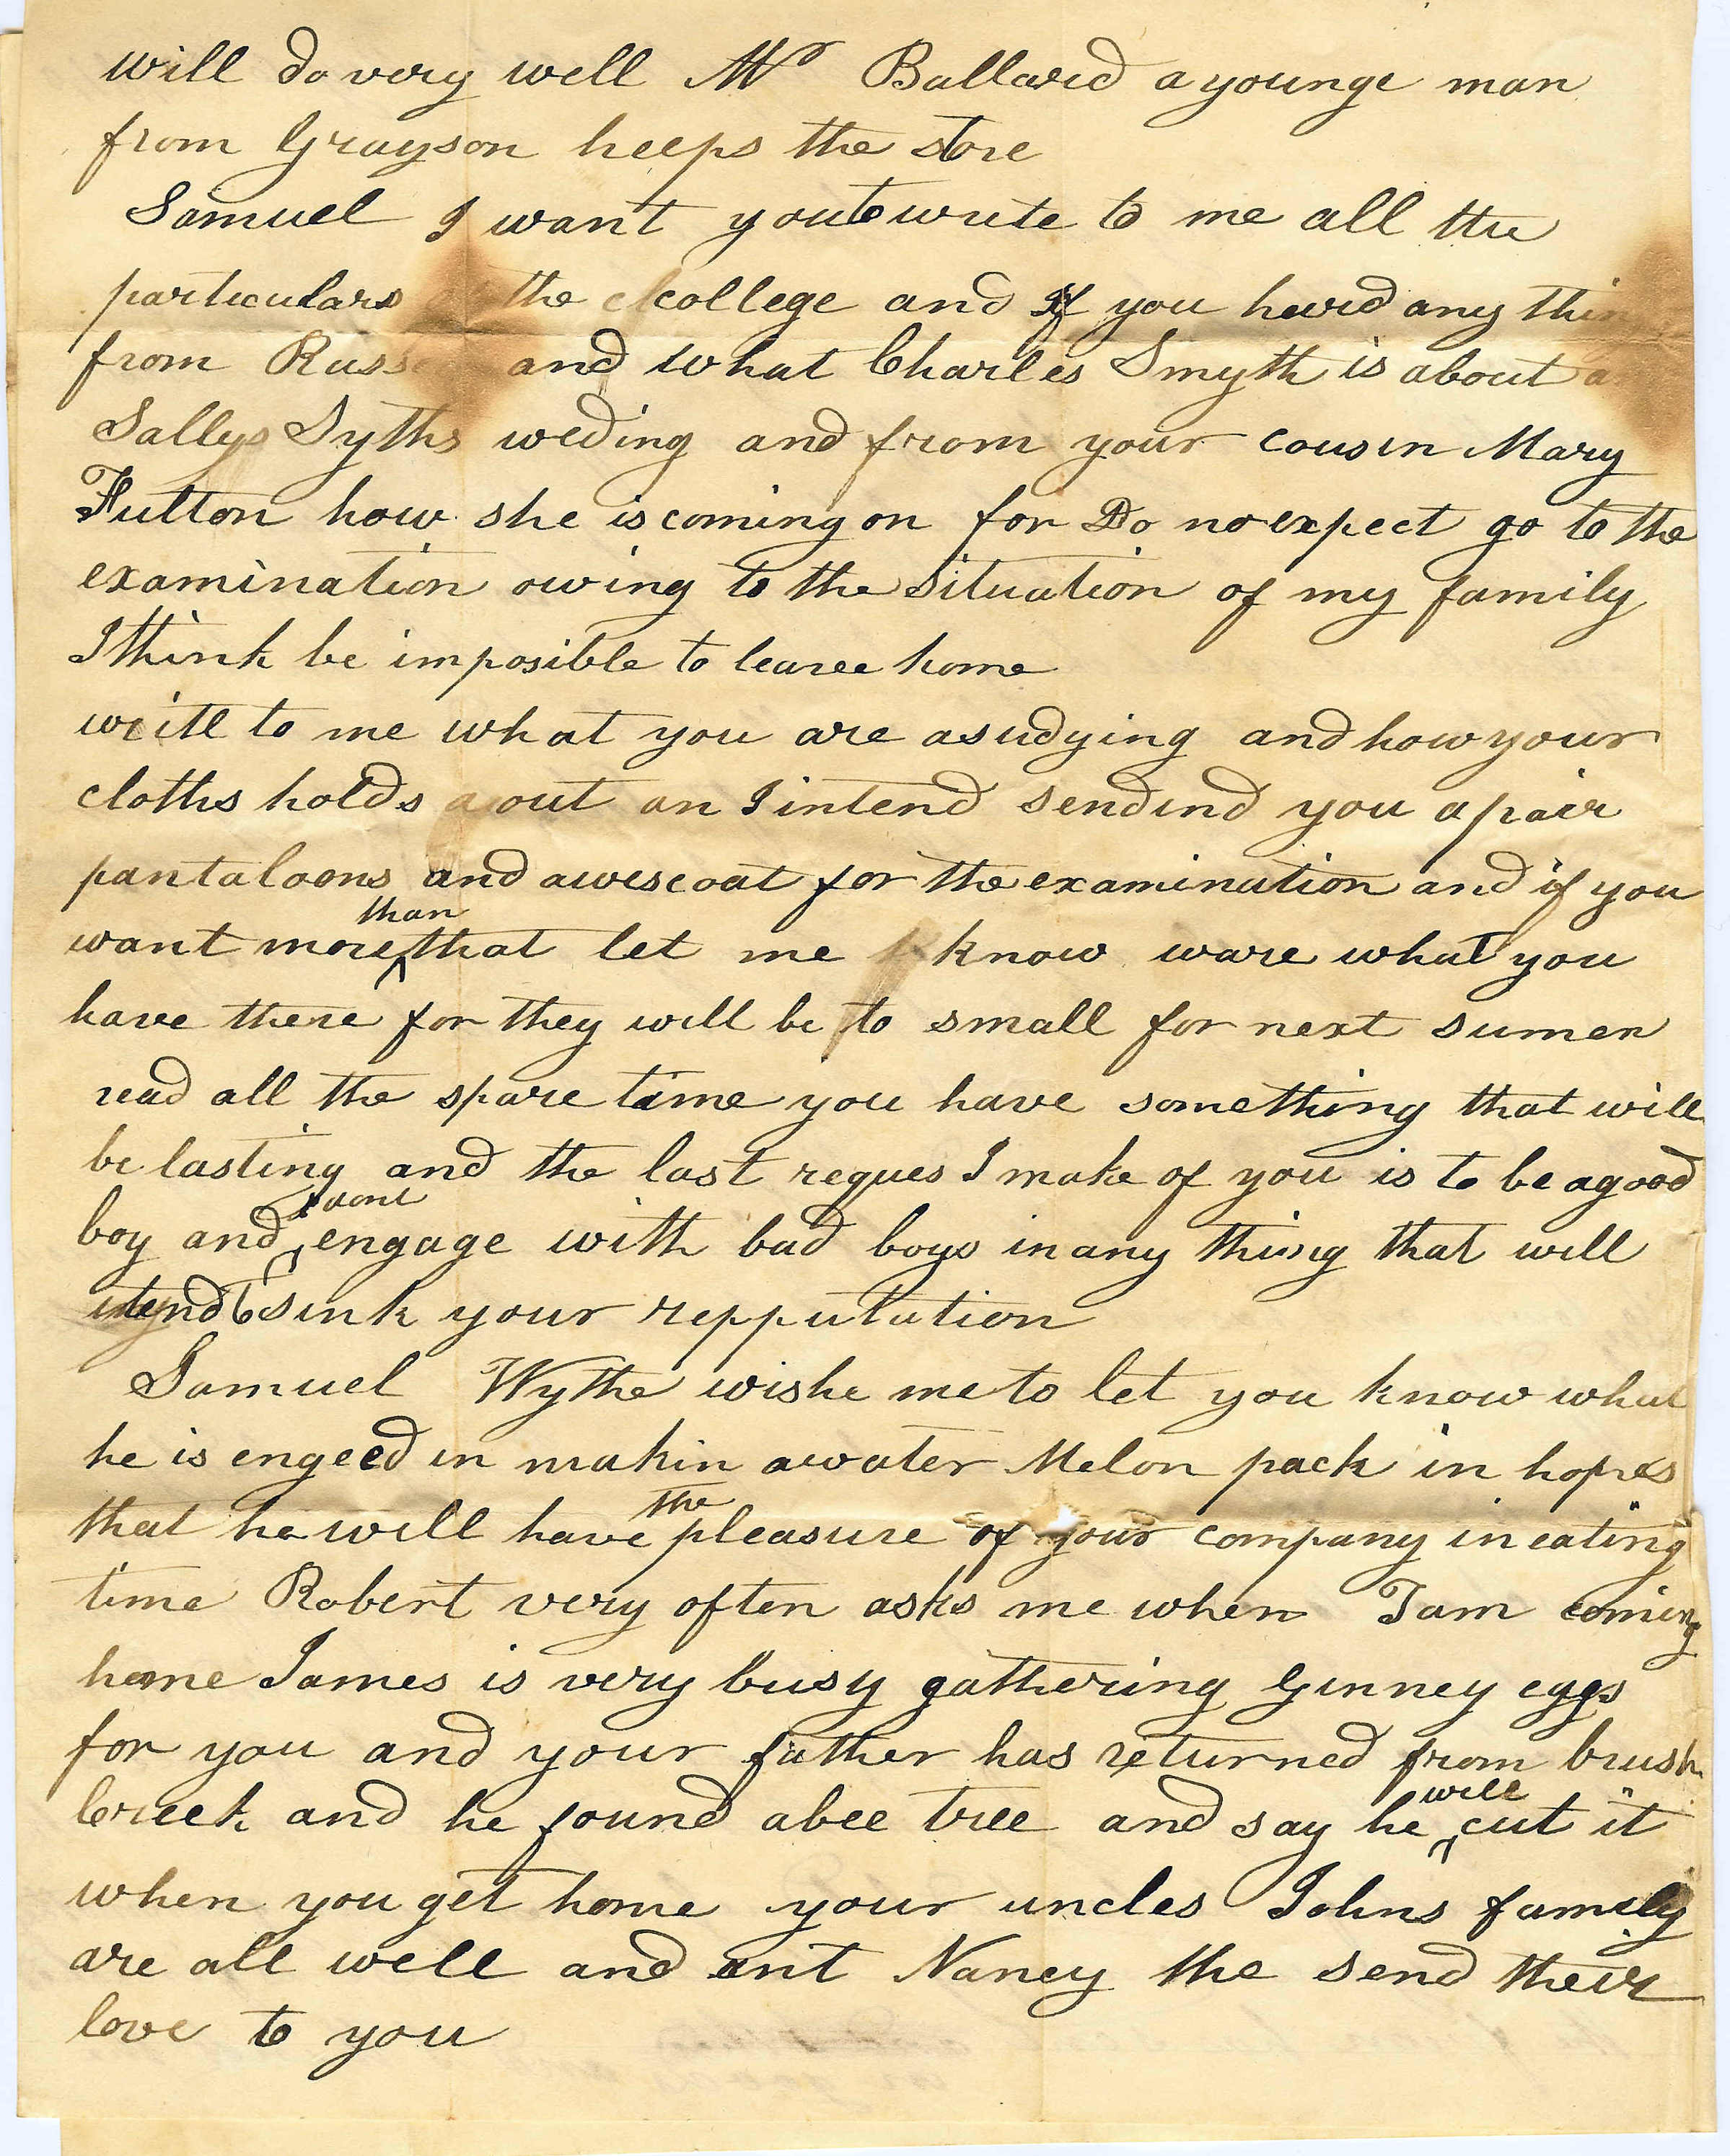 will do very well Mr Ballard a younge man
from Grayson keeps the store
Samuel I want you to write to me all the
particulars the college and if you heard any thin
from Russ and what Charles Smyth is about a
Sallys Syths weding and from your cousin Mary
Fulton how she is coming on for Do no expect go to the
examination owing to the situation of my family
I think be imposible to leavee home
write to me what you are asudying and how your
cloths holds out an I intend sendind you a pair
pantaloons and a wescoat for the examination and if you
want more than that let me know ware what you
have there for they will be to small for next sumer
read all the spare time you have something that will
be lasting and the last reques I make of you is to be a good
boy and dont engage with bad boys in any thing that will
tend to sink your repputation
Samuel Wythe wishe me to let you know what
he is engeed in makin a water Melon pack in hopes
that he will have the pleasure of your company in eating
time Robert very often asks me when Tam coming
home James is very busy gathering Ginney eggs
for you and your father has returned from brush
Creek and he found a bee tree and say he will cut it
when you get home your uncles Johns family
are all well and ant Nancy the send their
love to you